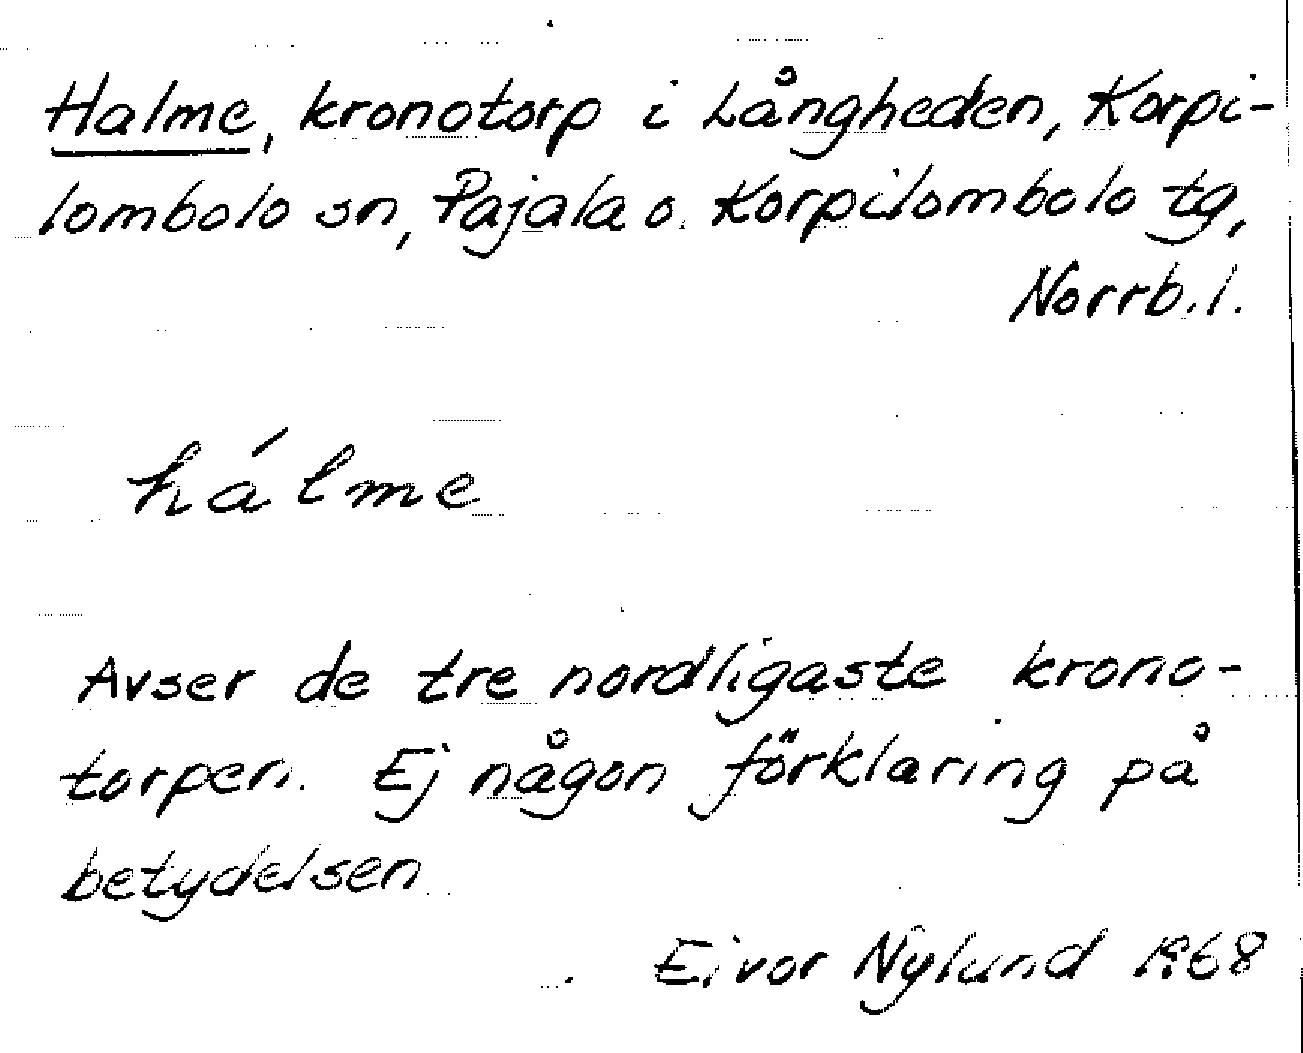 Halme, kronotorp i Långheden, Korpi-
lombolo sn, Pajala o. Korpilombolo tg,
Norrb. l.
hálme
Avser de tre nordligaste krono-
torpen. Ej någon förklaring på
betydelsen.
Eivor Nylund 1968